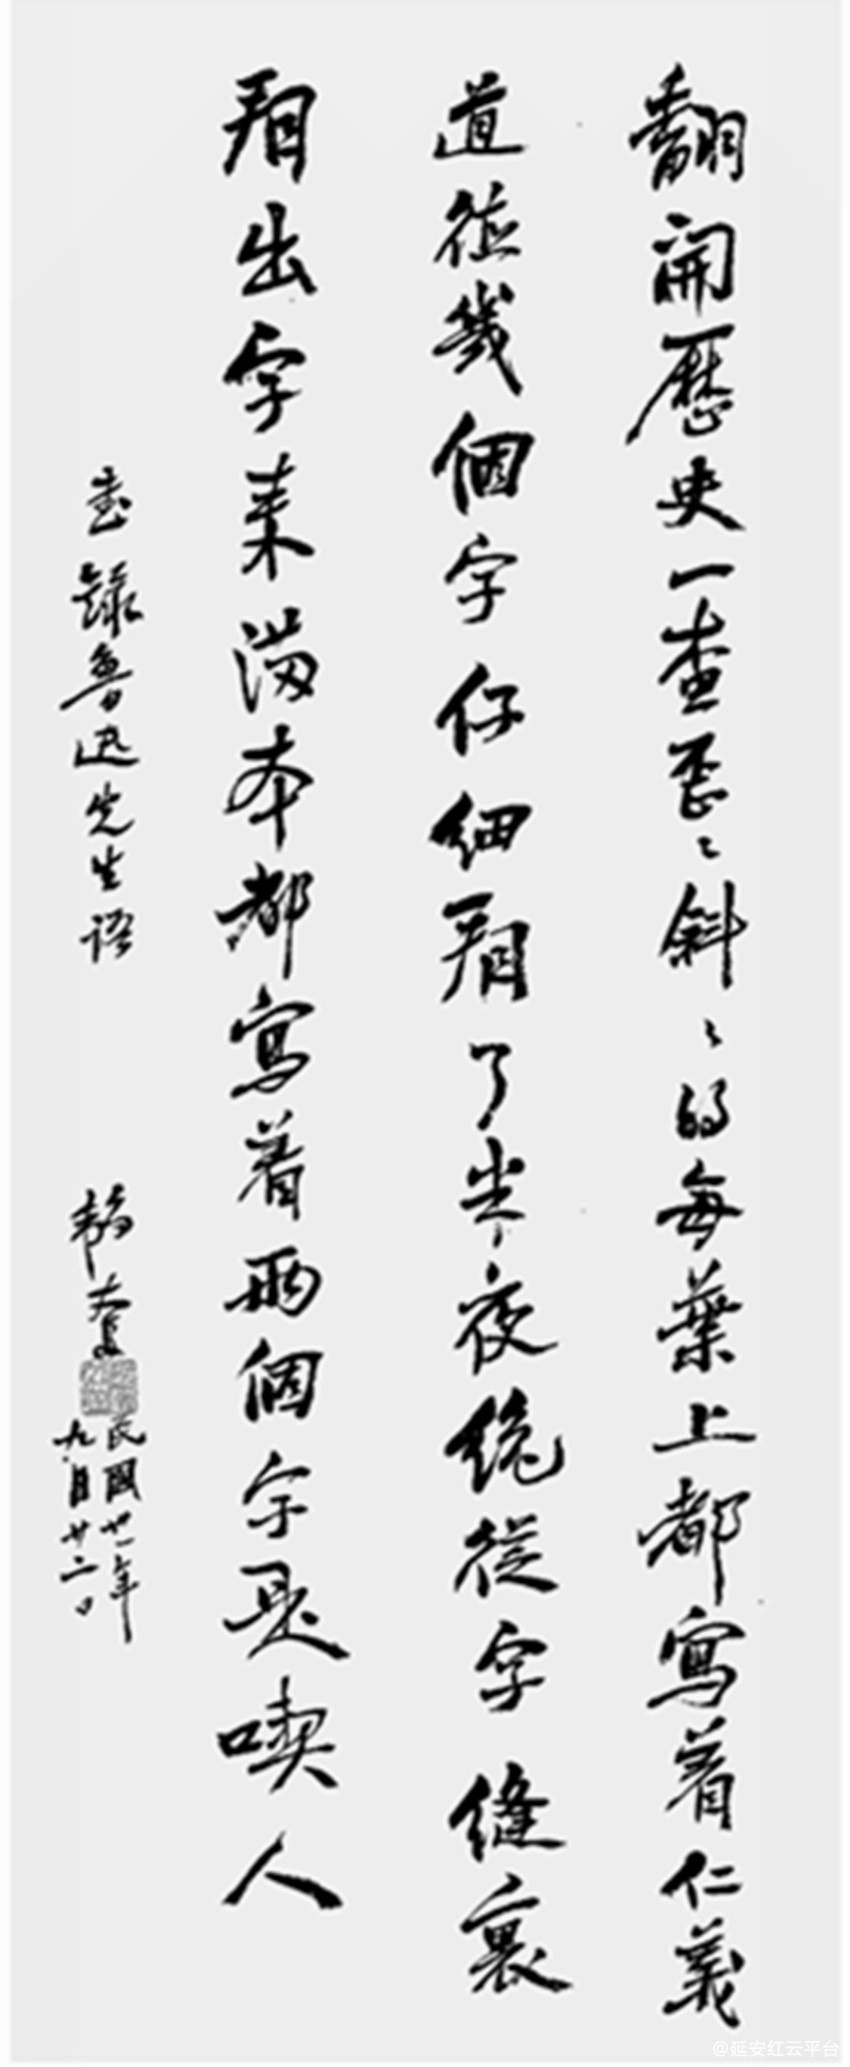 翻開歷史一查歪〻斜〻的每葉上都寫着仁義
道德幾個字仔細看了半夜纔從字縫裏
看出字來滿本都寫着兩個字是喫人
書錄魯迅先生語
韜奮
民國廿一年
九月廿二日
@延安红云平台